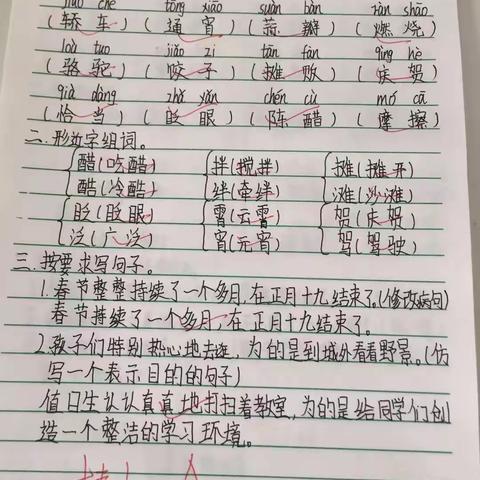 jiào chē tōng xiāo suàn bàn rán shāo
(轿车)(通宵)(蒜瓣)(燃烧)
luò tuo jiǎo zi tān fàn qìng hè
(骆驼)(饺子)(摊贩)(庆贺)
qià dàng zhǎ yǎn chén cù mó cā
(恰当)(眨眼)(陈醋)(摩擦)
二.形近字组词。
醋(吃醋) 拌(搅拌) 摊(摊开)
酷(冷酷) 绊(牵绊) 滩(沙滩)
眨(眨眼) 霄(云霄) 贺(庆贺)
泛(广泛) 宵(元宵) 驾(驾驶)
三.按要求写句子。
1.春节整整持续了一个多月,在正月十九结束了。(修改病句)
春节持续了一个多月,在正月十九结束了。
2.孩子们特别热心地去逛,为的是到城外看看野景。(仿
写一个表示目的的句子)
值日生认认真真地打扫着教室,为的是给同学们创
造一个整洁的学习环境。